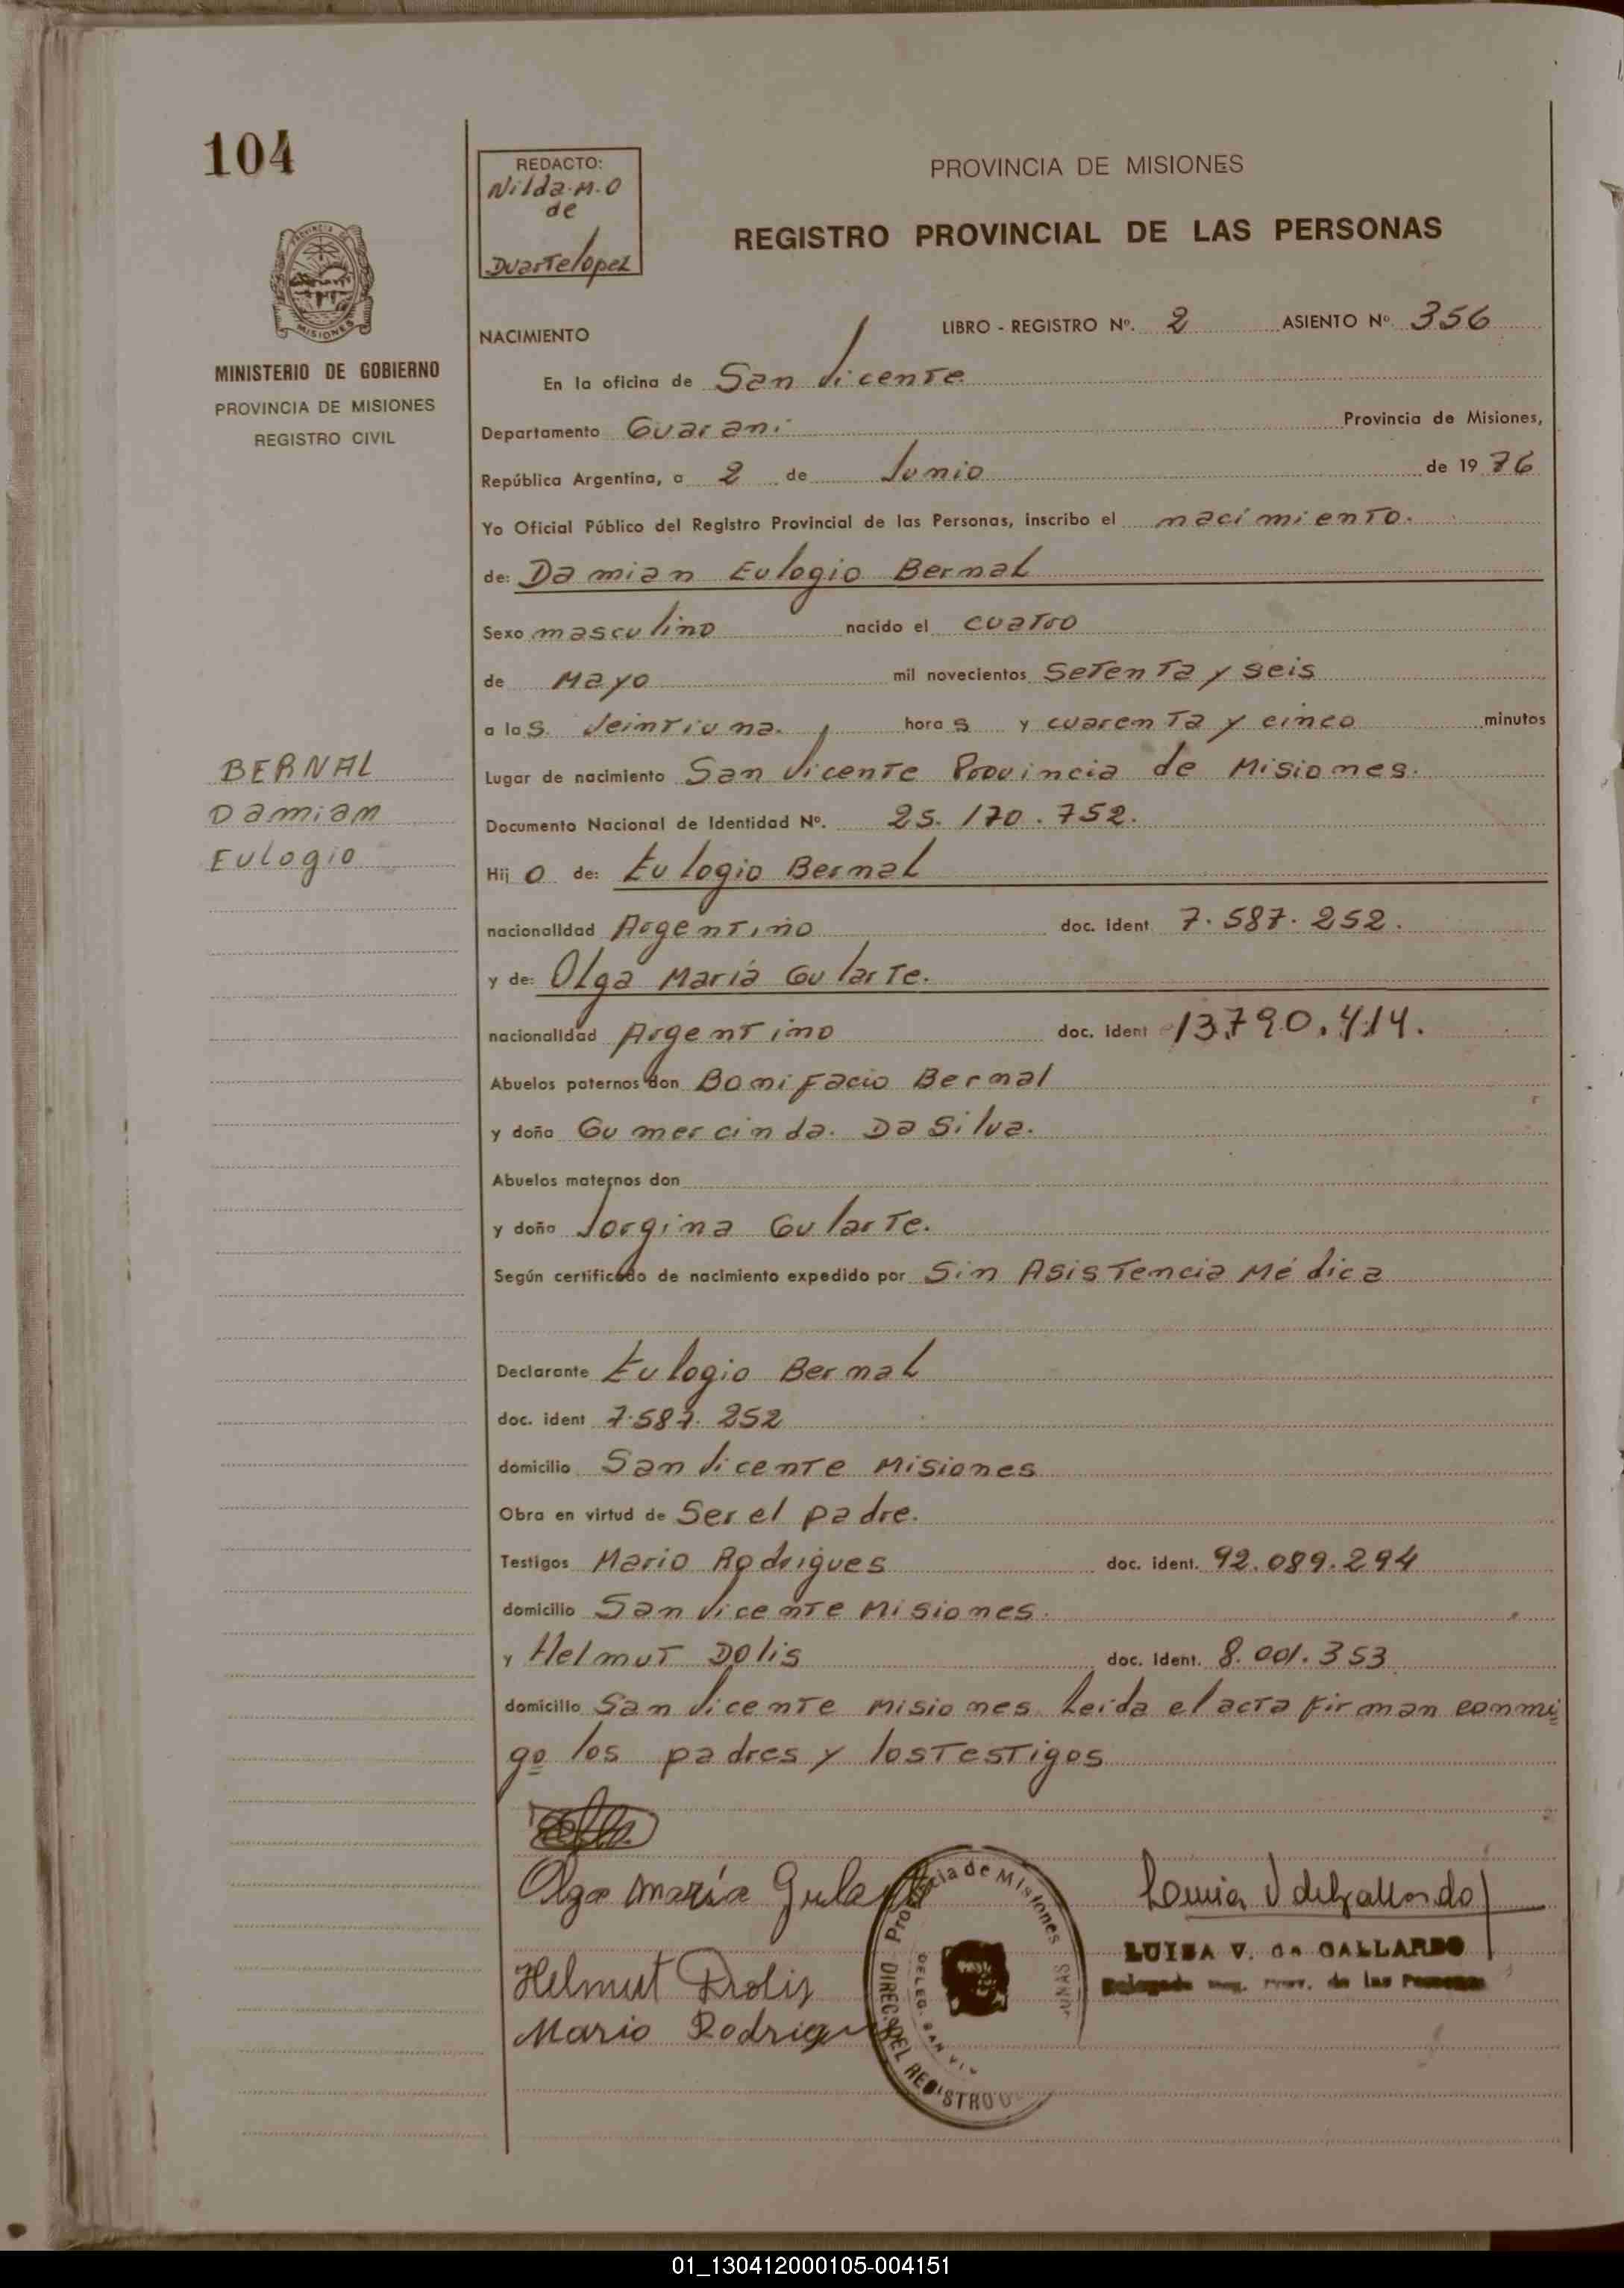 104
REDACTO:
Nilda.M.O
de
Duarte lopez
PROVINCIA DE MISIONES
REGISTRO PROVINCIAL DE LAS PERSONAS
PROVINCIA DE
MISIONES
MINISTERIO DE GOBIERNO
PROVINCIA DE MISIONES
REGISTRO CIVIL
NACIMIENTO
LIBRO - REGISTRO Nº. 2 ASIENTO Nº. 356
En la oficina de San Vicente
Departamento Guarani Provincia de Misiones,
República Argentina, a 2 de Junio de 1976
Yo Oficial Público del Registro Provincial de las Personas, inscribo el nacimiento.
de: Damian Eulogio Bernal
Sexo masculino nacido el cuatro
de Mayo mil novecientos setenta y seis
a las Veintiuna. horas y cuarenta y cinco minutos
Lugar de nacimiento San Vicente Provincia de Misiones.
Documento Nacional de Identidad Nº. 25.170.752.
Hijo de: Eulogio Bernal
nacionalidad Argentino doc. ident 7.587.252.
y de: Olga María Gularte.
nacionalidad Argentino doc. ident 13.790.414.
Abuelos paternos don Bonifacio Bernal
y doña Gumercinda. Da Silva.
Abuelos maternos don
y doña Jorgina Gularte.
Según certificado de nacimiento expedido por Sin Asistencia Médica
Declarante Eulogio Bernal
doc. ident 7.587.252
domicilio San Vicente Misiones
Obra en virtud de Ser el padre.
Testigos Mario Rodrigues doc. ident. 92.089.294
domicilio San Vicente Misiones.
y Helmut Dolis doc. ident. 8.001.353
domicilio San Vicente Misiones. Leída el acta firman conmi
go los padres y los testigos
BERNAL
Damian
Eulogio
Olga maría Gularte
Helmut Drolis
Mario Rodrigues
Provincia de Misiones
DIREC. DEL REGISTRO
DELEG. SAN VIC
Luisa V de Gallardo
LUISA V. de GALLARDO
Delegada Reg. Prov. de las Personas
01_130412000105-004151